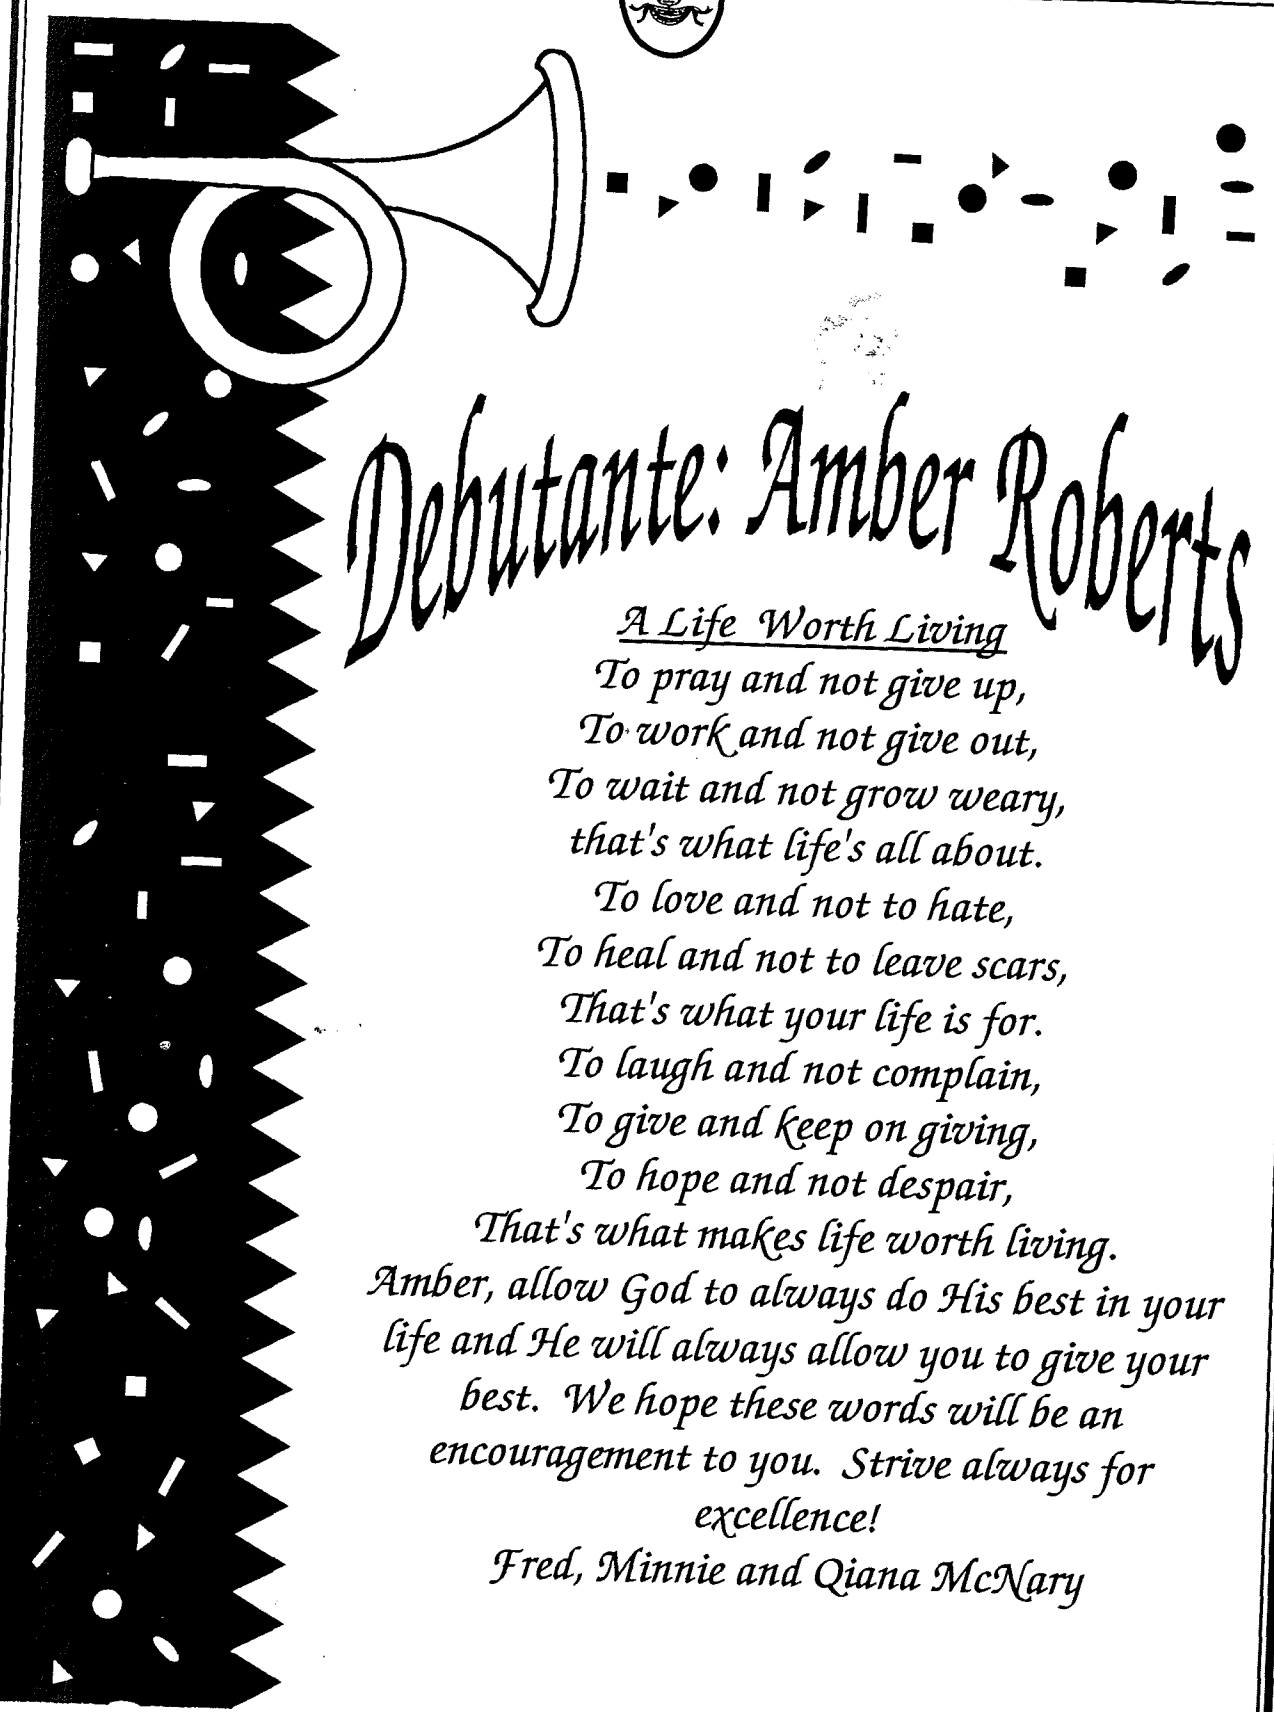 Debutante: Amber Roberts
A Life Worth Living
To pray and not give up,
To work and not give out,
To wait and not grow weary,
that's what life's all about.
To love and not to hate,
To heal and not to leave scars,
That's what your life is for.
To laugh and not complain,
To give and keep on giving,
To hope and not despair,
That's what makes life worth living.
Amber, allow God to always do His best in your
life and He will always allow you to give your
best. We hope these words will be an
encouragement to you. Strive always for
excellence!
Fred, Minnie and Qiana McNary